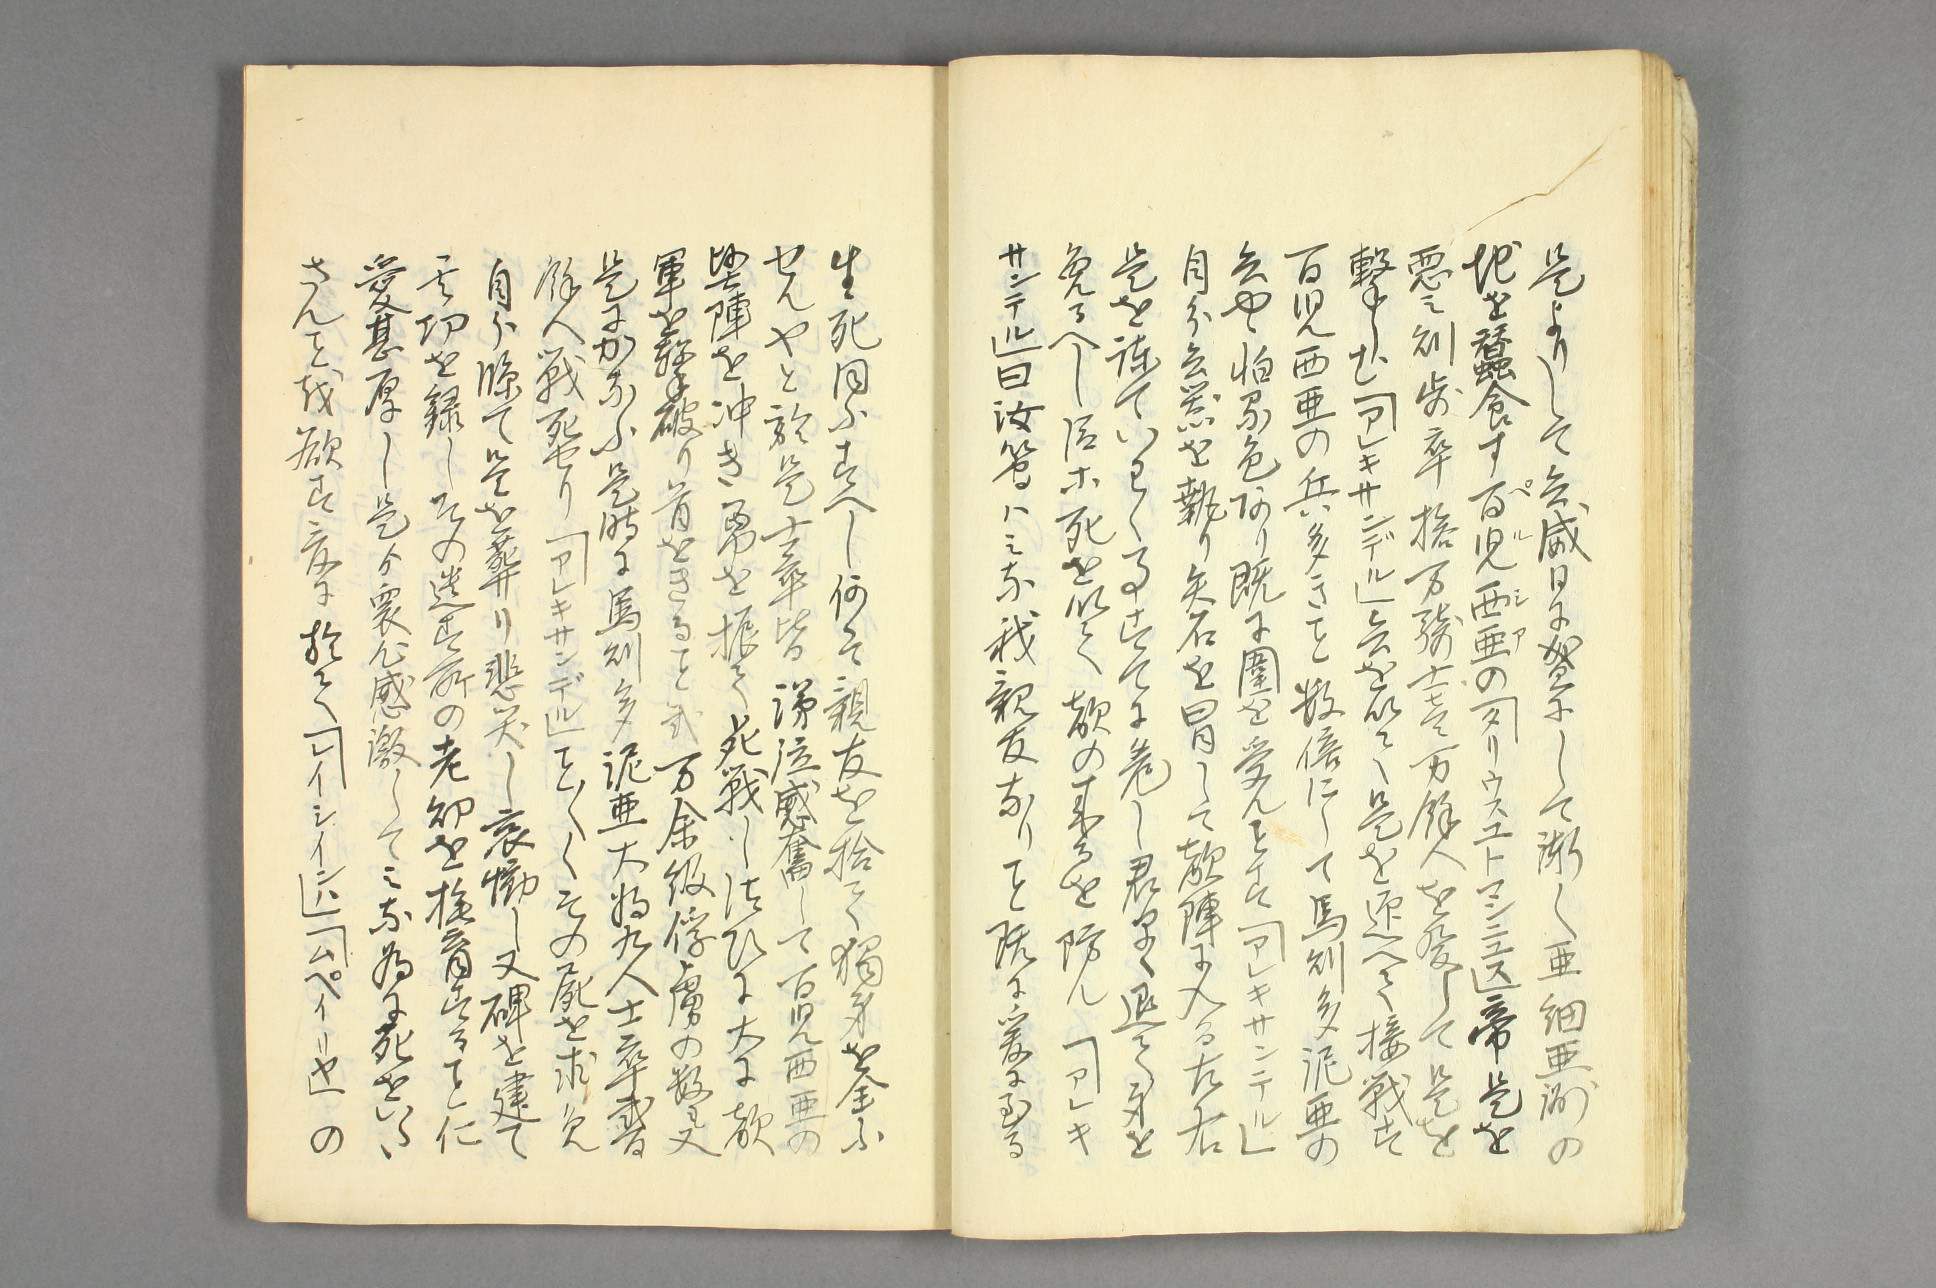 是よりして兵威日に盛にして漸く亜細亜洲の
地を蚕食す百児西亜の「タリウスユトマンニュス」帝是を
悪み則歩卒拾万騎士壱万餘人を発して是を
撃しむ「アレキサンデル」兵を以て是を迎へて接戦す
百児西亜の兵多きこと数倍にして馬則多泥亜の
兵やゝ怕るゝ色あり既に囲を受んとす「アレキサンテル」
自分兵器を執り矢石を冒して敵陣に入る左右
是を諌ていわく事すてに危し君早く退て身を
免るへし臣ホ死を以て敵の来るを防ん「アレキ
サンテル」曰汝等ハミな我親友なりと既に爰に至る
生死同ふすへし何そ親友を捨て獨身を全ふ
せんやと於是士卒皆涕泣感奮して百児西亜の
堅陣を沖き勇を振て死戦し法ひに大に敵
軍を撃破り首をきること弐万余級俘虜の数も又
是にかなふ是時に馬則多泥亜大将九人士卒弐百
餘人戦死せり「アレキサンデル」ことことくその屍を求免
自分臨て是を葬り悲哭し哀慟し又碑を建て
其功を録しその遺す所の老幼を撫育すること仁
愛甚厚し是ゟ衆心感激してミな為に死をいた
さんことを欲す爰に於て「レイシイン」ハ「ムペイリヤ」の